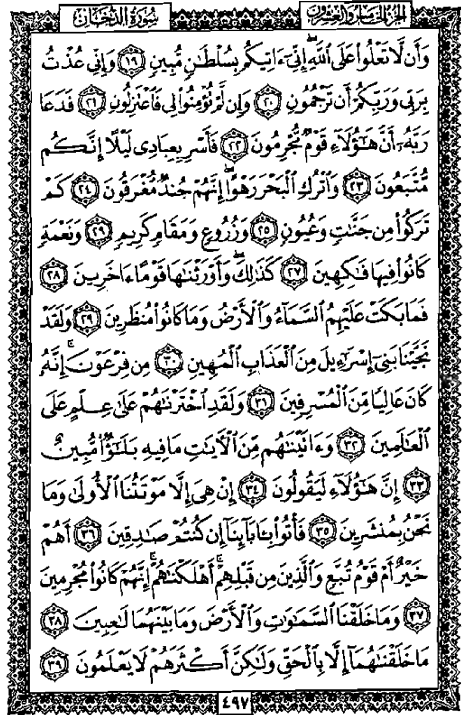 سُورَةُ الدُّخَانِ
الجُزْءُ الخَامِسُ وَالعِشْرُونَ
وَأَن لَّا تَعْلُوا۟ عَلَى ٱللَّهِ إِنِّىٓ ءَاتِيكُم بِسُلْطَٰنٍ مُّبِينٍ ١٩ وَإِنِّى عُذْتُ
بِرَبِّى وَرَبِّكُمْ أَن تَرْجُمُونِ ٢٠ وَإِن لَّمْ تُؤْمِنُوا۟ لِى فَٱعْتَزِلُونِ ٢١ فَدَعَا
رَبَّهُۥٓ أَنَّ هَٰٓؤُلَآءِ قَوْمٌ مُّجْرِمُونَ ٢٢ فَأَسْرِ بِعِبَادِى لَيْلًا إِنَّكُم
مُّتَّبَعُونَ ٢٣ وَٱتْرُكِ ٱلْبَحْرَ رَهْوًا إِنَّهُمْ جُندٌ مُّغْرَقُونَ ٢٤ كَمْ
تَرَكُوا۟ مِن جَنَّٰتٍ وَعُيُونٍ ٢٥ وَزُرُوعٍ وَمَقَامٍ كَرِيمٍ ٢٦ وَنَعْمَةٍ
كَانُوا۟ فِيهَا فَٰكِهِينَ ٢٧ كَذَٰلِكَ وَأَوْرَثْنَٰهَا قَوْمًا ءَاخَرِينَ ٢٨
فَمَا بَكَتْ عَلَيْهِمُ ٱلسَّمَآءُ وَٱلْأَرْضُ وَمَا كَانُوا۟ مُنظَرِينَ ٢٩ وَلَقَدْ
نَجَّيْنَا بَنِىٓ إِسْرَٰٓءِيلَ مِنَ ٱلْعَذَابِ ٱلْمُهِينِ ٣٠ مِن فِرْعَوْنَ إِنَّهُۥ
كَانَ عَالِيًا مِّنَ ٱلْمُسْرِفِينَ ٣١ وَلَقَدِ ٱخْتَرْنَٰهُمْ عَلَىٰ عِلْمٍ عَلَى
ٱلْعَٰلَمِينَ ٣٢ وَءَاتَيْنَٰهُم مِّنَ ٱلْءَايَٰتِ مَا فِيهِ بَلَٰٓؤٌا۟ مُّبِينٌ
٣٣ إِنَّ هَٰٓؤُلَآءِ لَيَقُولُونَ ٣٤ إِنْ هِىَ إِلَّا مَوْتَتُنَا ٱلْأُولَىٰ وَمَا
نَحْنُ بِمُنشَرِينَ ٣٥ فَأْتُوا۟ بِـَٔابَآئِنَآ إِن كُنتُمْ صَٰدِقِينَ ٣٦ أَهُمْ
خَيْرٌ أَمْ قَوْمُ تُبَّعٍ وَٱلَّذِينَ مِن قَبْلِهِمْ أَهْلَكْنَٰهُمْ إِنَّهُمْ كَانُوا۟ مُجْرِمِينَ
٣٧ وَمَا خَلَقْنَا ٱلسَّمَٰوَٰتِ وَٱلْأَرْضَ وَمَا بَيْنَهُمَا لَٰعِبِينَ ٣٨
مَا خَلَقْنَٰهُمَآ إِلَّا بِٱلْحَقِّ وَلَٰكِنَّ أَكْثَرَهُمْ لَا يَعْلَمُونَ ٣٩
٤٩٧